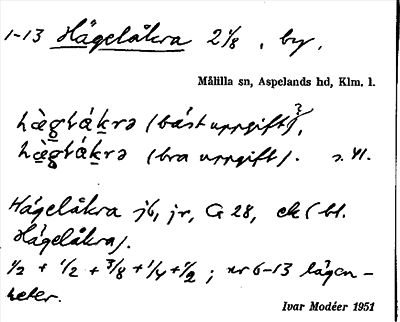 1-13 Hägelåkra 2 1/8, by.
Målilla sn, Aspelands hd, Klm. l.
(bäst uppgift)?,
(bra uppgift). s. 41.
Hägelåkra jb, jr, G 28, ek (bl.
Hägelåkra).
1/2 + 1/2 + 3/8 + 1/4 + 1/2; nr 6-13 lägen-
heter.
Ivar Modéer 1951